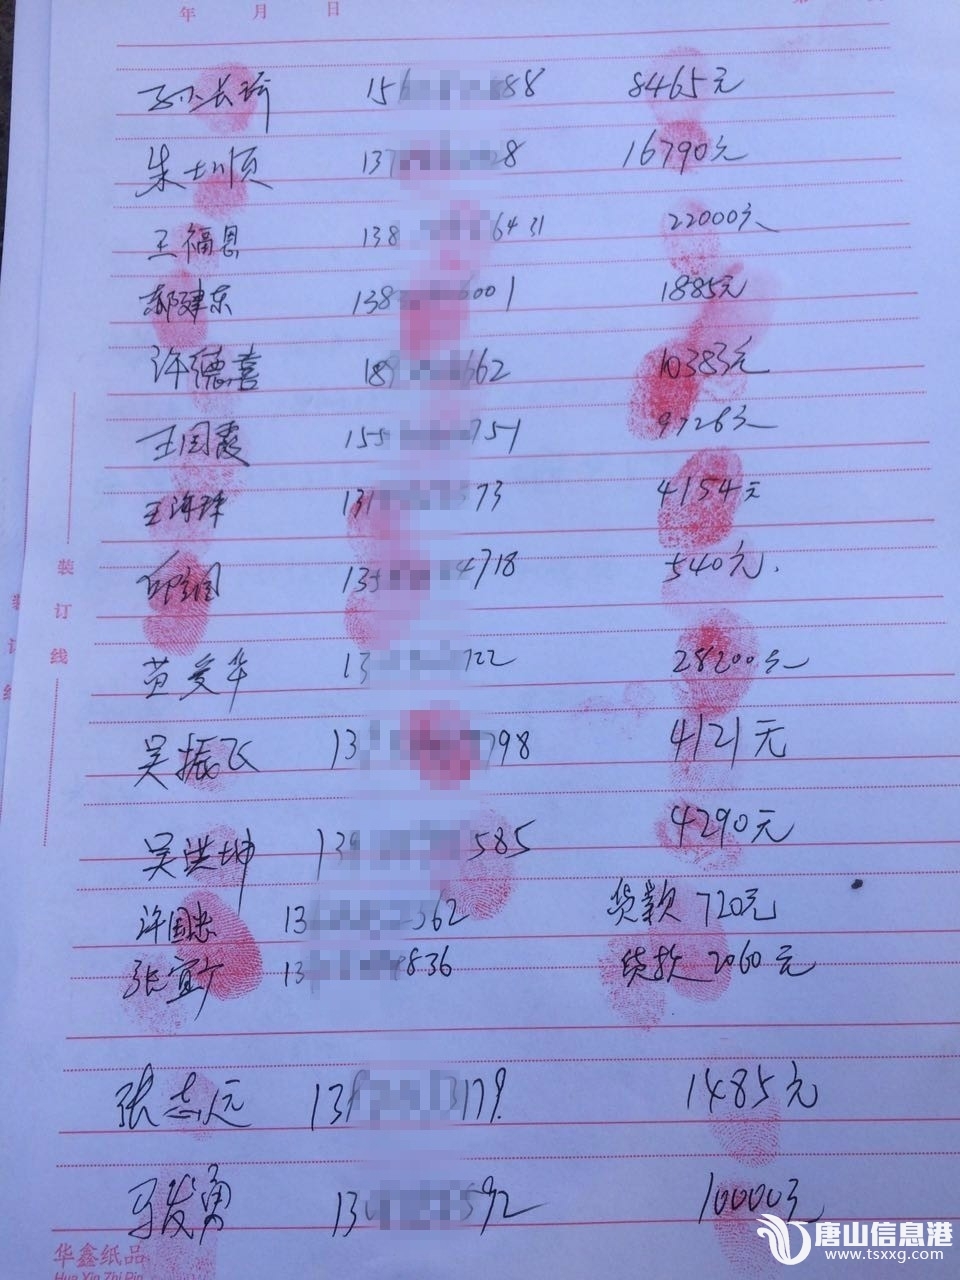 年 月 日
孙长琦 15 88 8465元
朱士顺 137 8 16790元
王福恩 138 6431 22000元
郝建东 138 6001 1885元
许德喜 18 662 10383元
王国霞 155 751 9726元
王海球 131 73 4154元
邱 国 13 4718 540元.
黄爱华 13 722 28200元
吴振飞 13 798 4121元
吴洪坤 139 585 4290元
许国忠 13 362 货款 720元
张宜 13 836 货款 2060元
张志元 13 3179 1485元
马发勇 13 592 10000元
装
订
线
华鑫纸品
Hua Xin Zhi Pin
唐山信息港
www.tsxxg.com